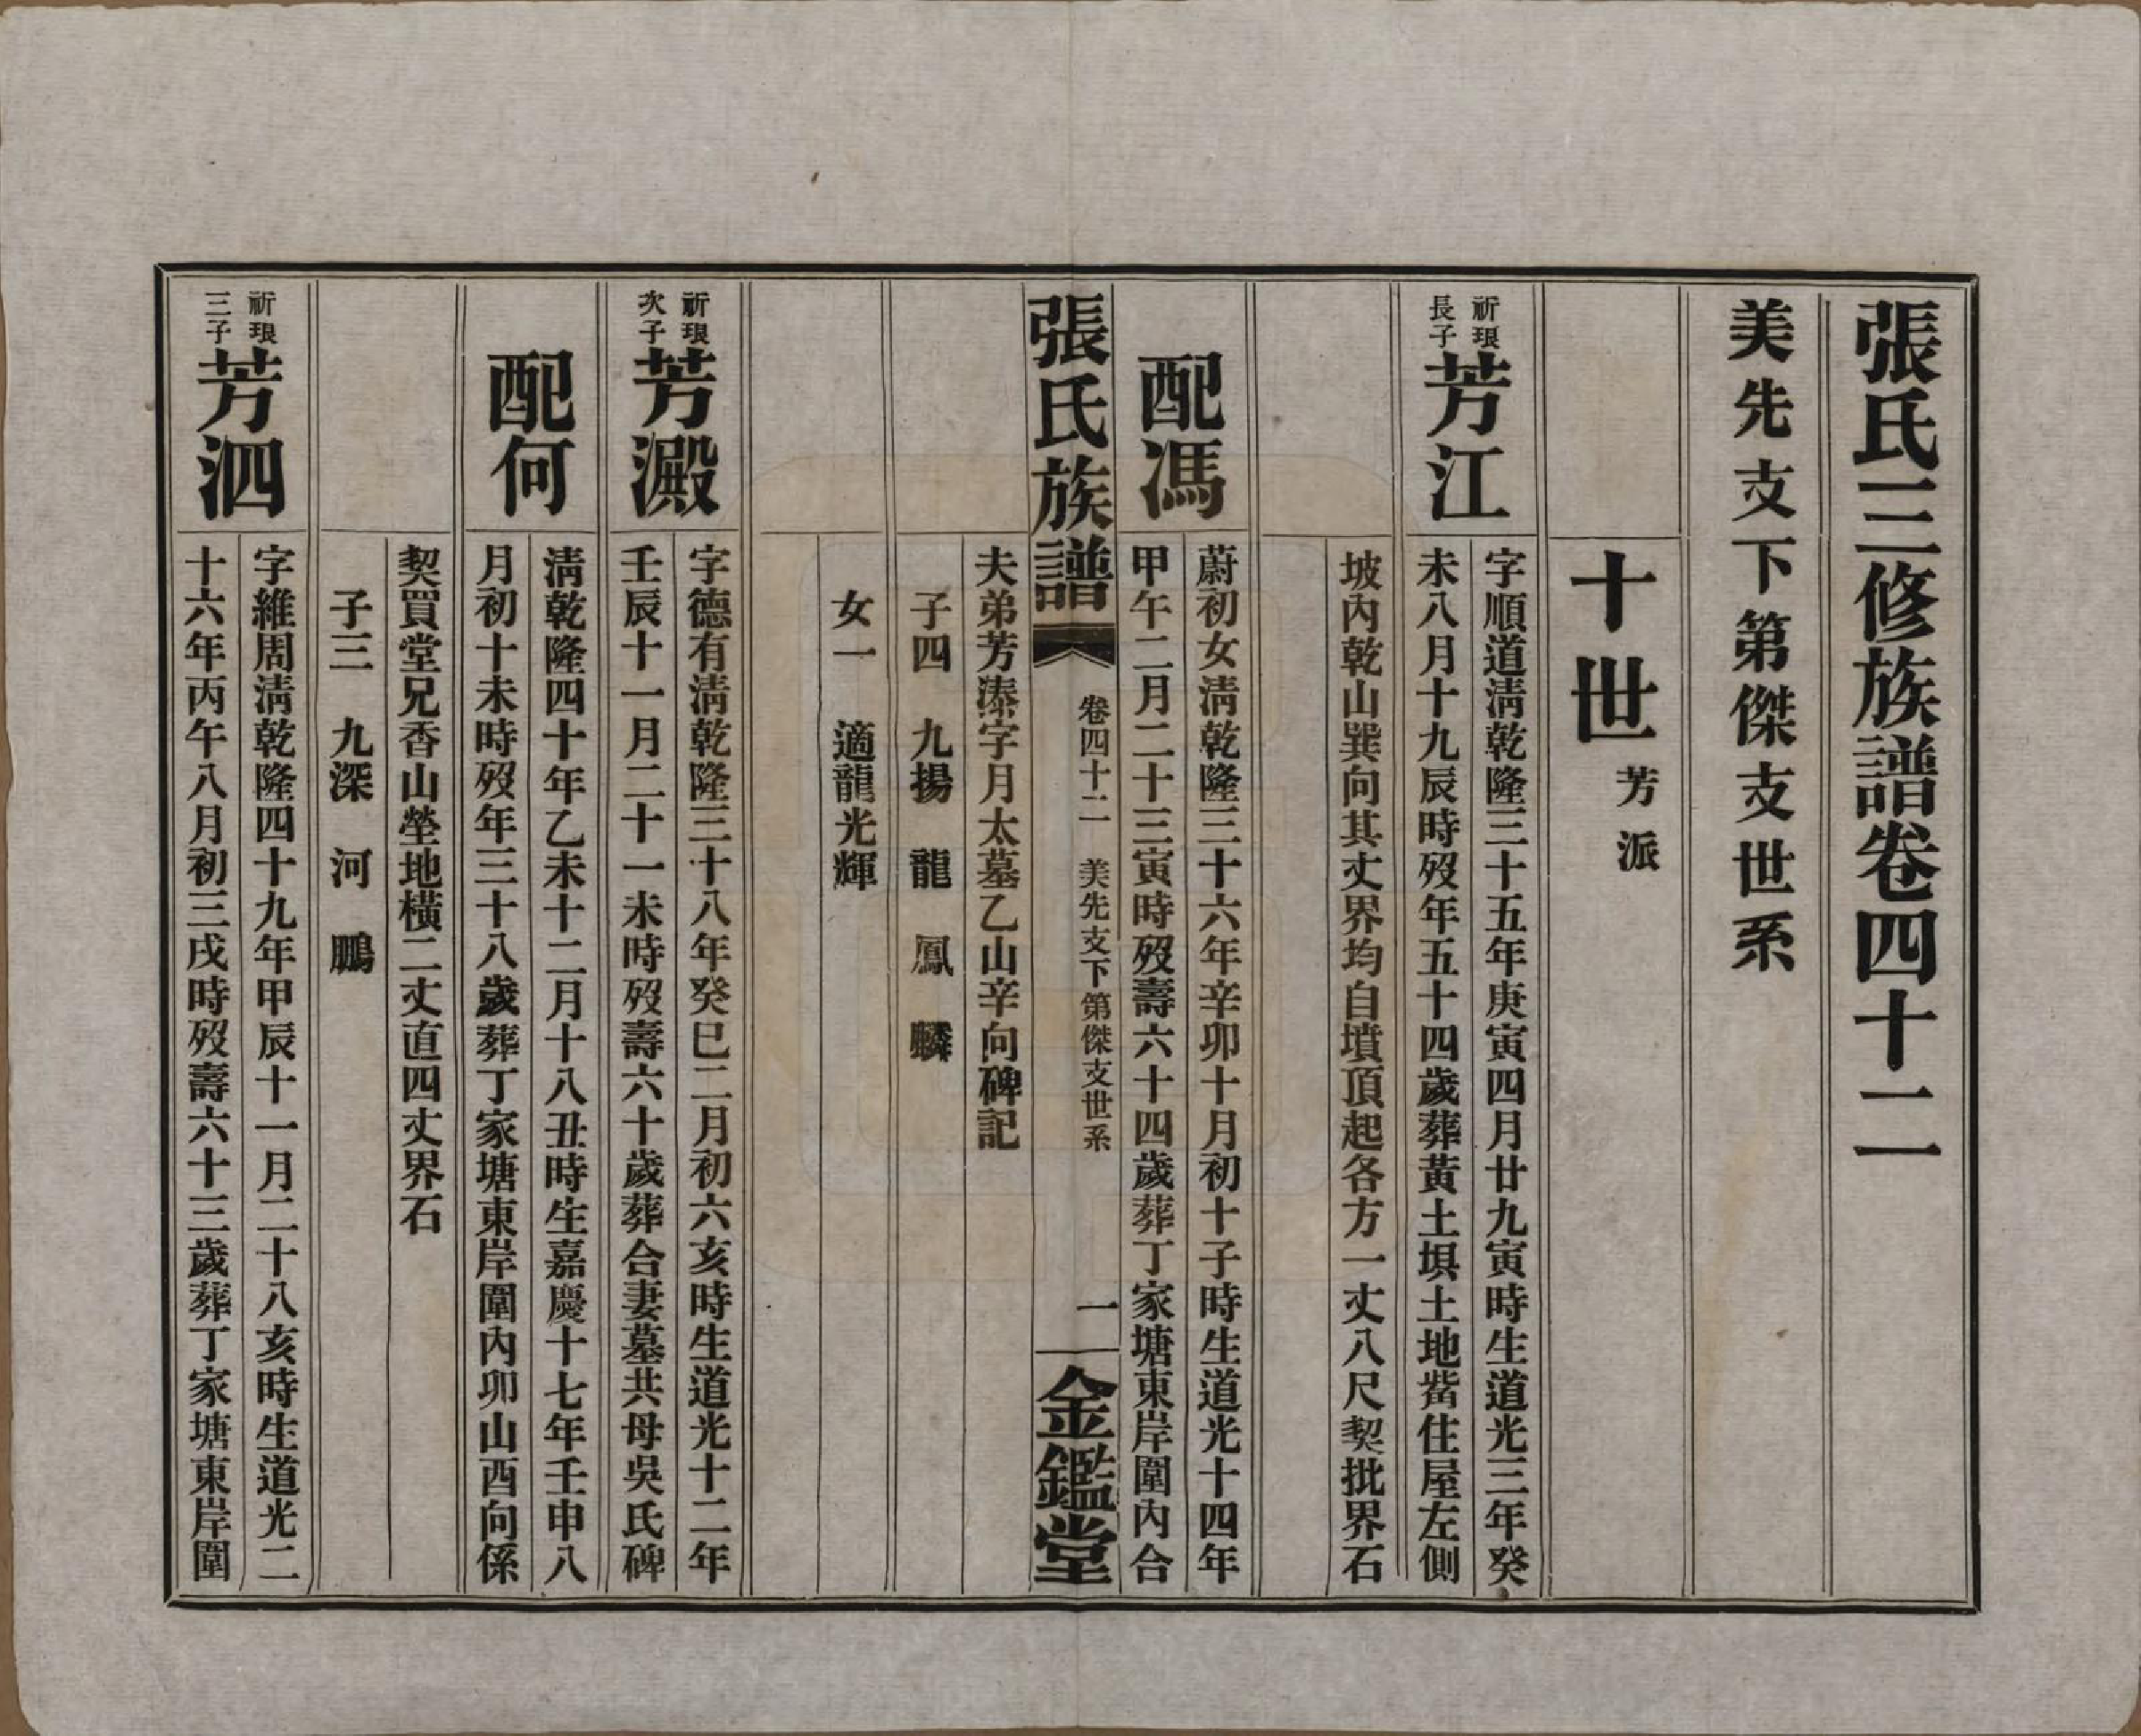 張氏三修族譜卷四十二
美先支下第傑支世系
十世 芳派
祈琅
長子
芳江
字順道清乾隆三十五年庚寅四月廿九寅時生道光三年癸
未八月十九辰時歿年五十四歲葬黃土垻土地嘴住屋左側
坡內乾山巽向其丈界均自墳頂起各方一丈八尺契批界石
配馮
蔚初女清乾隆三十六年辛卯十月初十子時生道光十四年
甲午二月二十三寅時歿壽六十四歲葬丁家塘東岸圍內合
張氏族譜
卷四十二 美先支下第傑支世系
一
金鑑堂
夫弟芳溙字月太墓乙山辛向碑記
子四 九揚 龍 鳳 麟
女一 適龍光輝
祈琅
次子
芳澱
字德有清乾隆三十八年癸巳二月初六亥時生道光十二年
壬辰十一月二十一未時歿壽六十歲葬合妻墓共母吳氏碑
配何
清乾隆四十年乙未十二月十八丑時生嘉慶十七年壬申八
月初十未時歿年三十八歲葬丁家塘東岸圍內卯山酉向係
契買堂兄香山塋地橫二丈直四丈界石
子三 九深 河 鵬
祈琅
三子
芳泗
字維周清乾隆四十九年甲辰十一月二十八亥時生道光二
十六年丙午八月初三戌時歿壽六十三歲葬丁家塘東岸圍